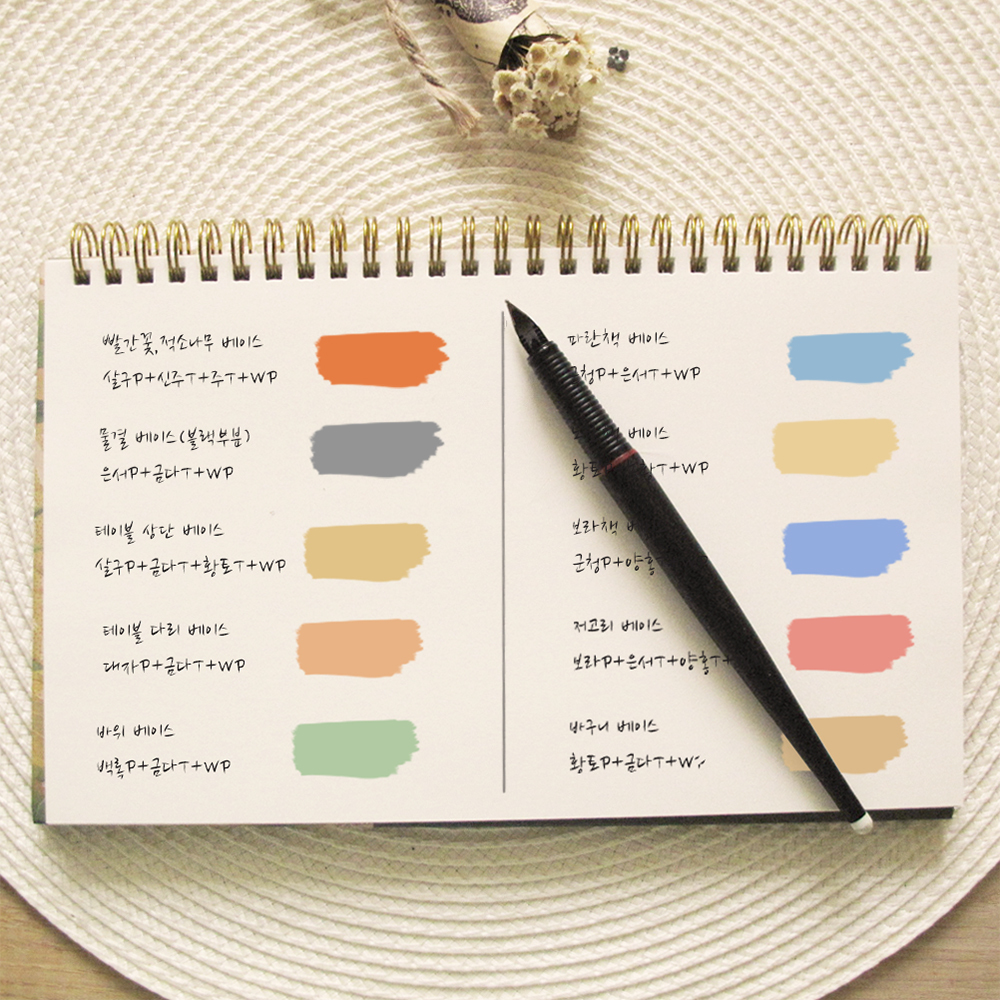 빨간꽃,적소나무 베이스
살구P+신주T+주T+WP
물결 베이스(블랙부분)
은서P+금다T+WP
테이블 상단 베이스
살구P+금다T+황토T+WP
테이블 다리 베이스
대자P+금다T+WP
바위 베이스
백록P+금다T+WP
파란책 베이스
청P+은서T+WP
베이스
황토 T+WP
보라책
군청P+양홍
저고리 베이스
보라P+은서T+양홍T+
바구니 베이스
황토P+금다T+W